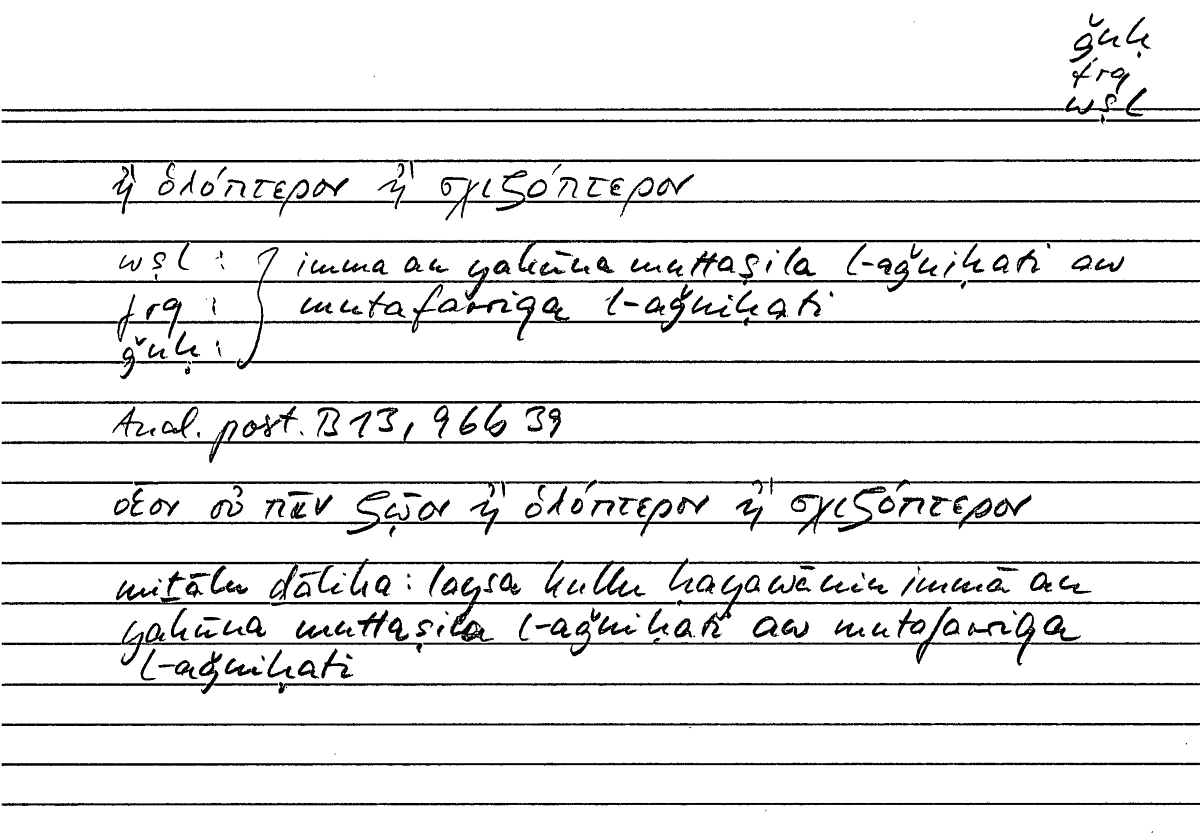 ǧnḥ
frq
wṣl
ἢ ὁλόπτερον ἢ σχιζόπτερον
wṣl : imma an yakūna muttaṣila l-aǧniḥati aw
frq : mutafarriqa l-aǧniḥati
ǧnḥ :
Anal. post. B 13, 96b 39
οἷον οὐ πᾶν ζῷον ἢ ὁλόπτερον ἢ σχιζόπτερον
miṯālu ḏālika: laysa kullu ḥayawānin immā an
yakūna muttaṣila l-aǧniḥati aw mutafarriqa
l-aǧniḥati